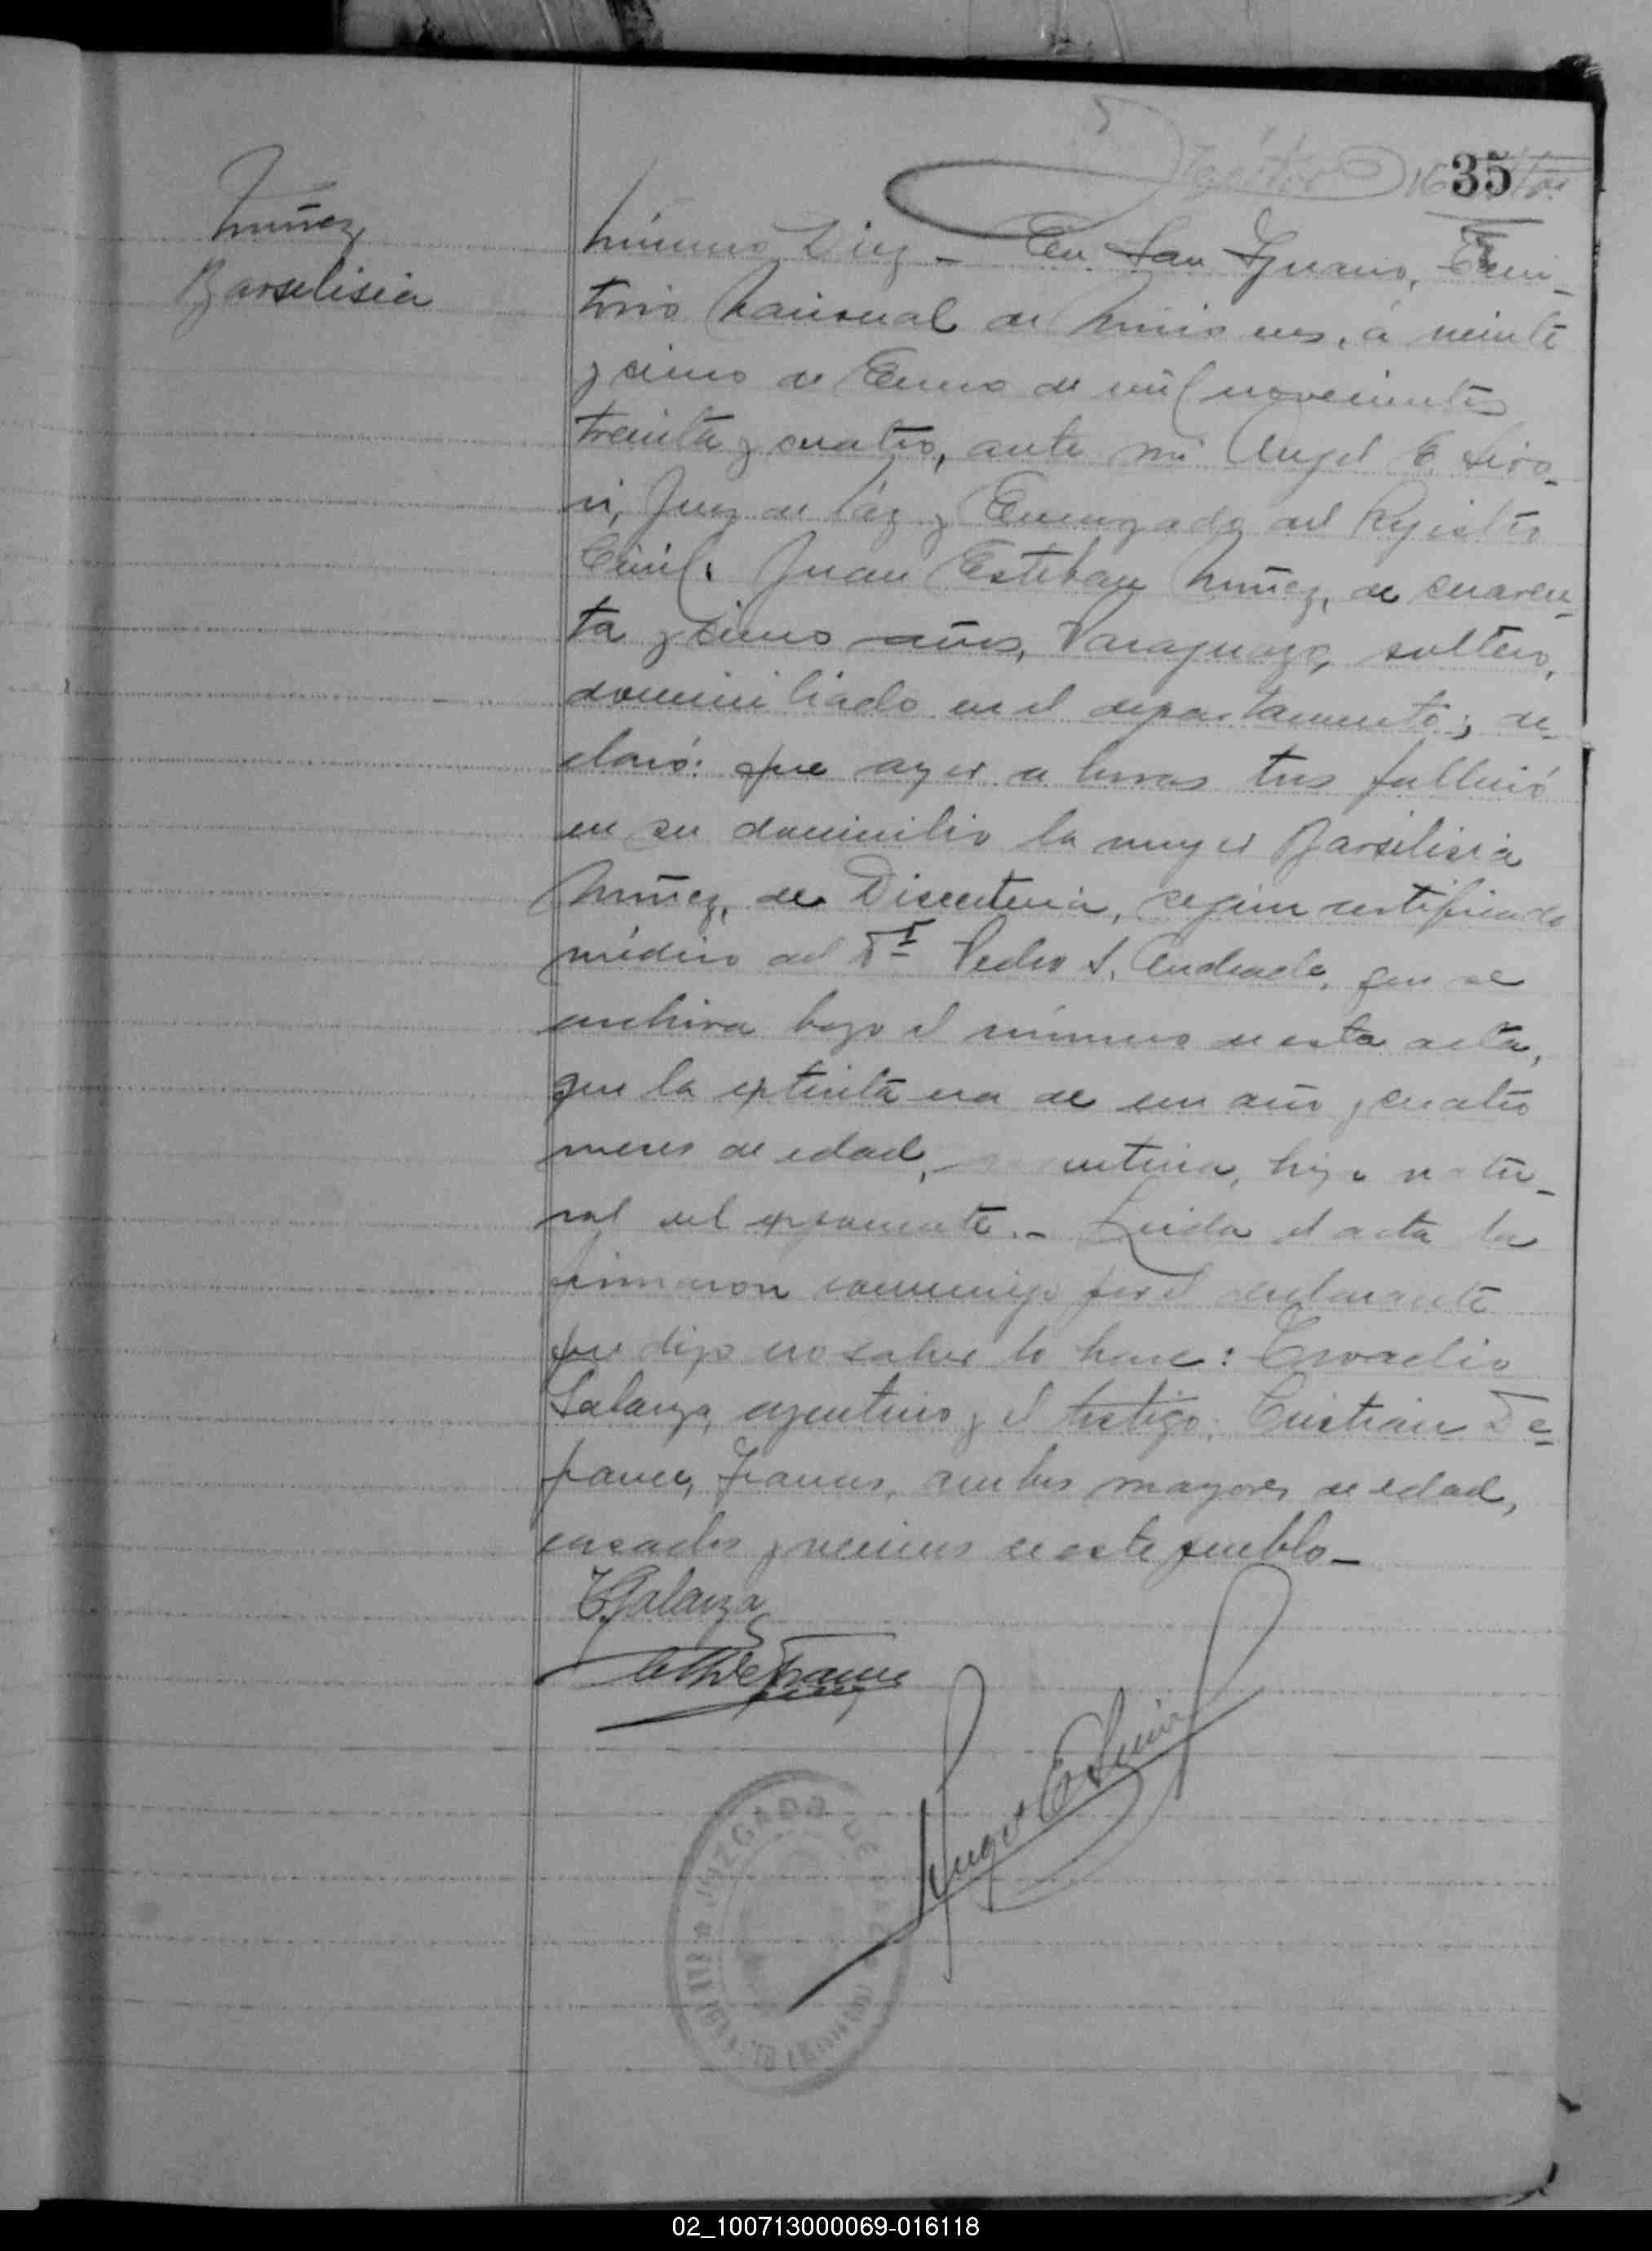 35
Núñez
Barselisia
Número Diez – En San Ygnacio, Terri-
torio Nacional de Misiones, á veinte
y cinco de Enero de mil novecientos
treinta y cuatro, ante mi Angel E. Siro-
ni, Juez de Páz y Encargado del Registro
Civil: Juan Esteban Núñez, de cuaren-
ta y cinco años, Paraguayo, soltero,
domiciliado en el departamento; de-
claró: que ayer a horas tres falleció
en su domicilio la mujer Barselisia
Núñez, de Disenteria, según certificado
médico del Dr Pedro S. Andrade, que se
archiva bajo el número de esta acta,
que la extinta era de un año y cuatro
meses de edad, hija natu-
ral del exponente.- Leida el acta la
firmaron conmigo por el declarante
que dijo no saber lo hace:
Galarza, argentino y el testigo: Cristian De-
france, Frances, ambos mayores de edad,
casados y vecinos de este pueblo –
Galarza
Defrance
Angel E Sironi
JUZGADO DE